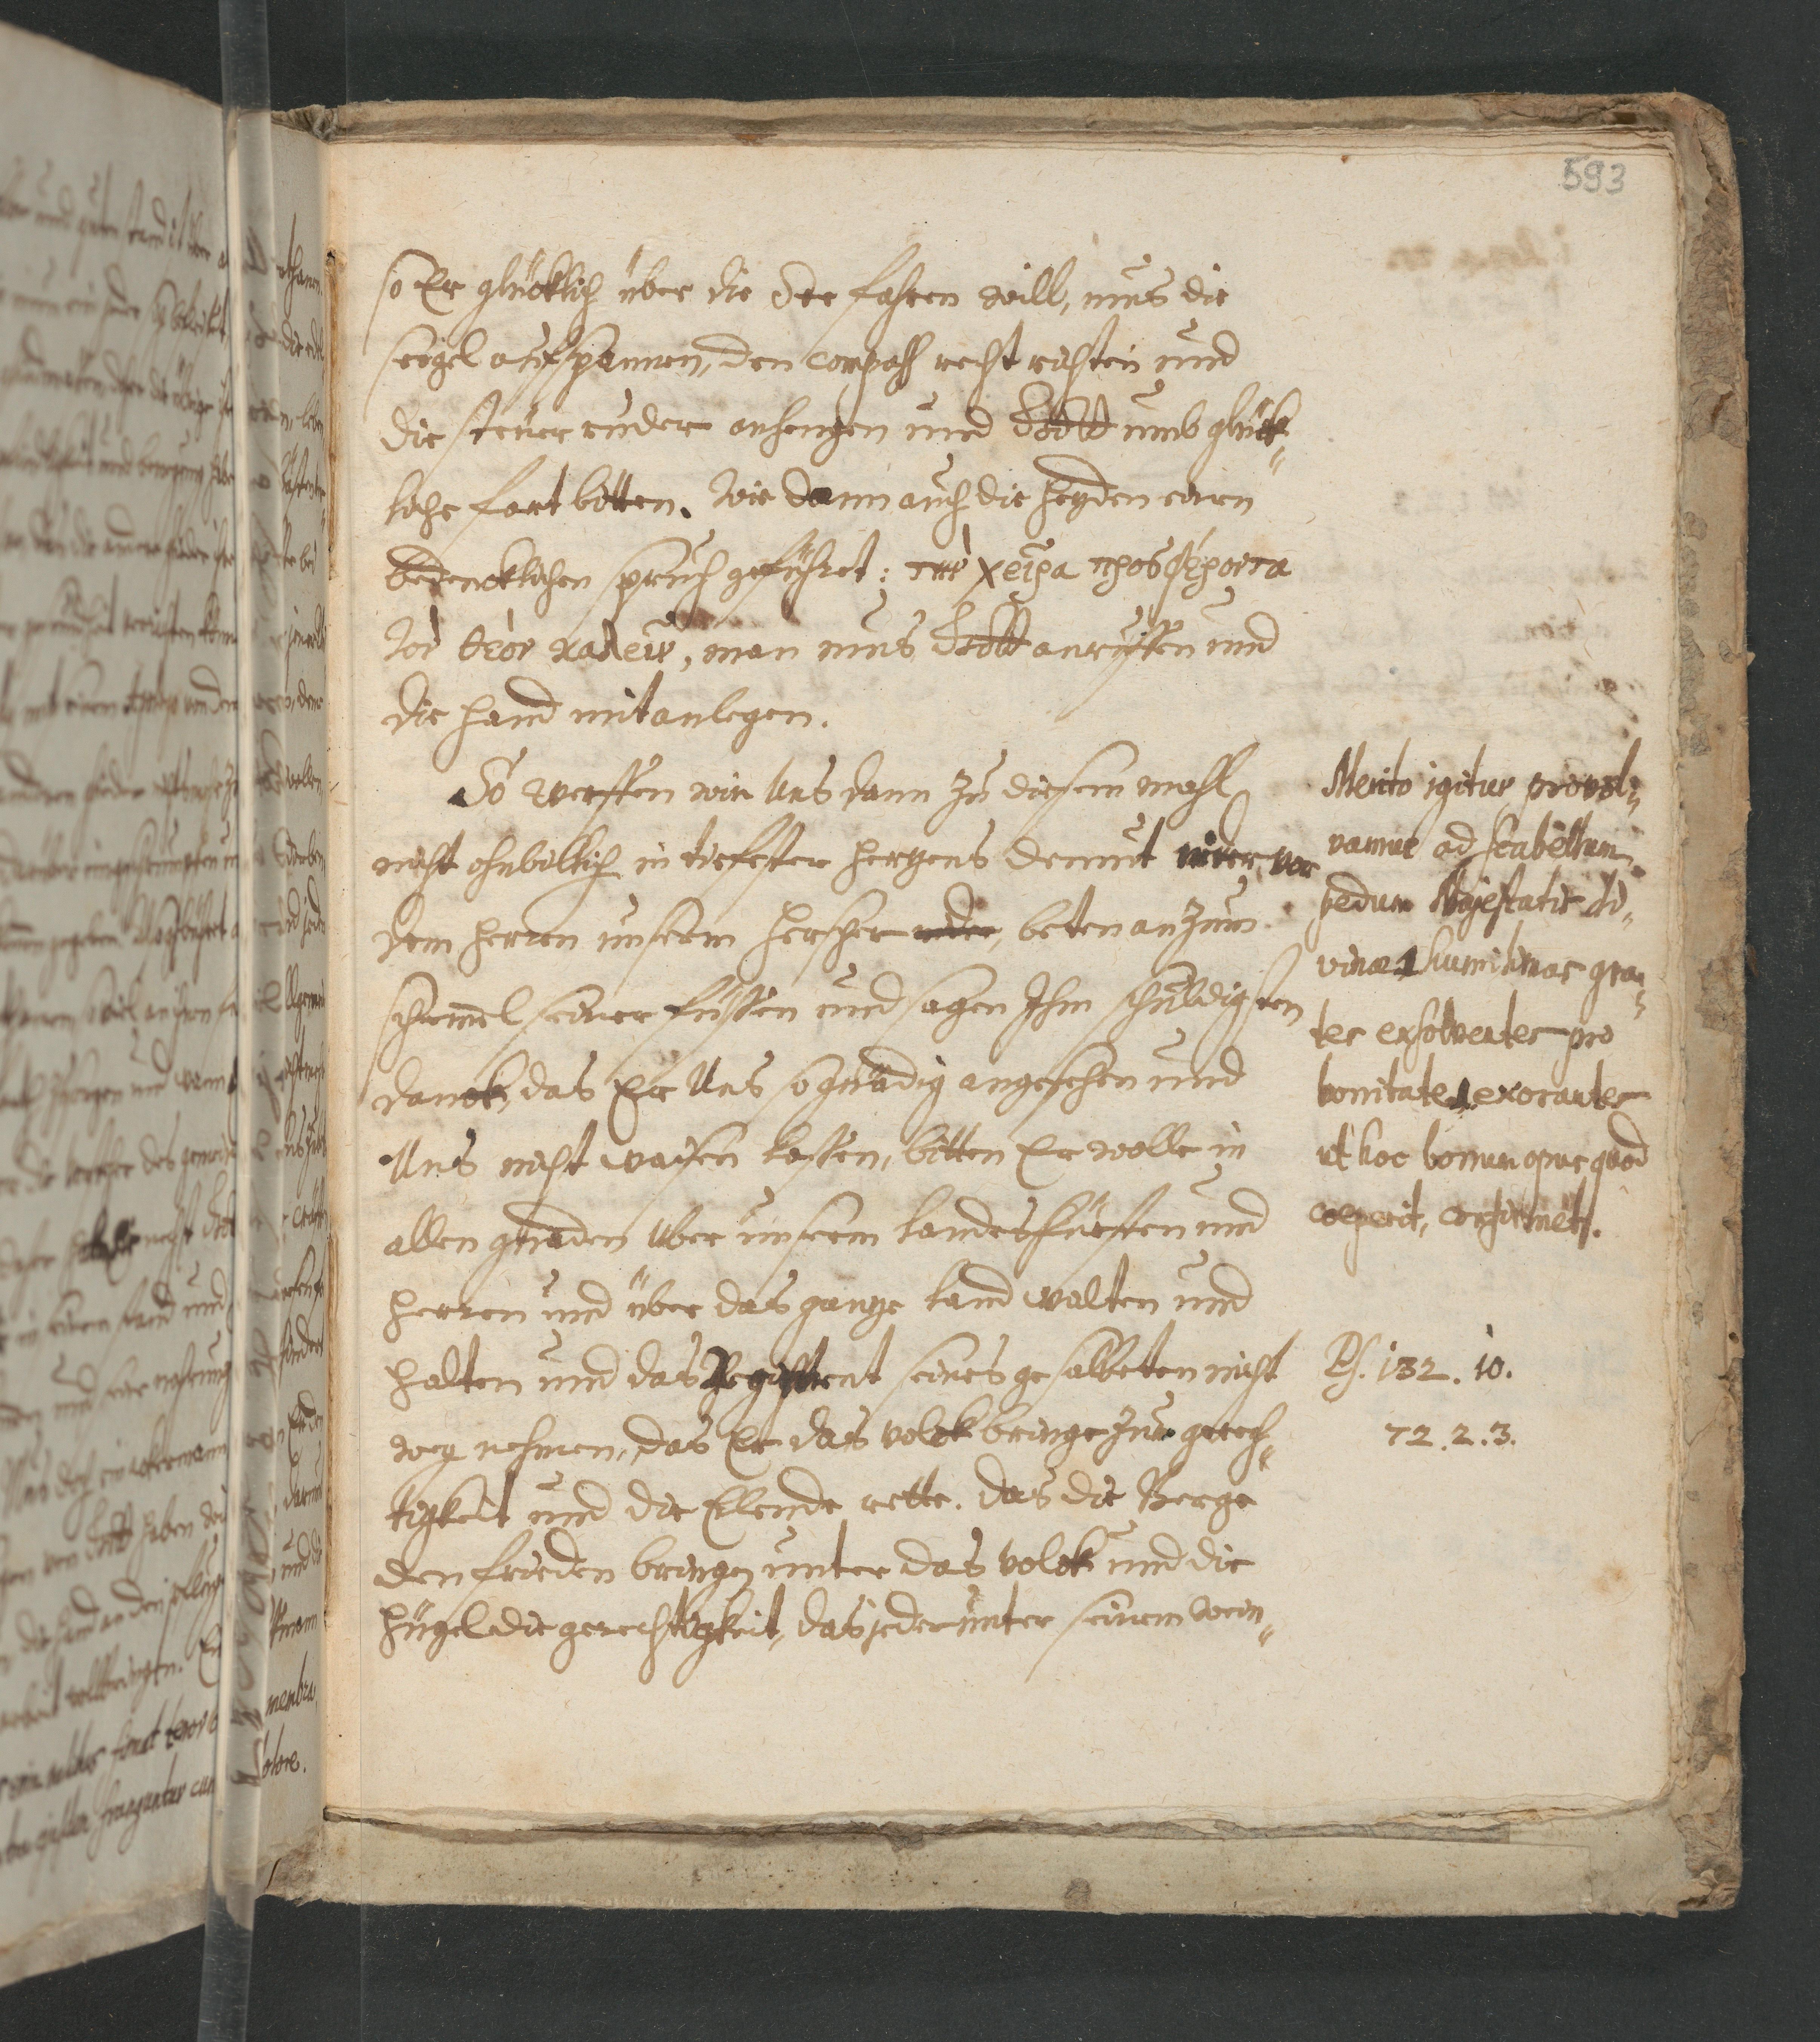 593
so Er glücklich über die See fahren will, mus die
seegel aufspannen, den compass recht richten und
die steuerruder anhengen und Gott umb glück„
liche fart bitten. Wie dann auch die heyden einen
bedencklichen spruch geführet: τὴν χεῖρα προσφέροντα
τὸν θεὸν καλεῖν, man mus Gott anruffen und
die hand mit anlegen.
So werffen wir Uns dann zu diesem mahl
nicht ohnbillich in tieffester hertzens demut nider vor
dem herren unserm herscher, beten an zum
schemel seiner füssen und sagen Ihm schuldigsten
danck, das Er Uns so gnädig angesehen und
Uns nicht waisen lassen, bitten Er wolle in
allen gnaden über unserm landesfürsten und
herren und über das gantze land walten und
halten und das Regiment seines gesalbeten nicht
weg nehmen, das Er das volck bringe zur gerech„
tigkeit und die Elende rette. das die Berge
den frieden bringen unter das volck und die
hügel die gerechtigkeit, das jeder unter seinem wein„
Merito igitur provol„
vamur ad scabellum
pedum Majestatis di„
vinæ humilimas gra„
tes exsolventes pro
bonitate exorantes
ut hoc bonum opus quod
coeperit, confirmet.
Ps. 132. 10.
72. 2. 3.